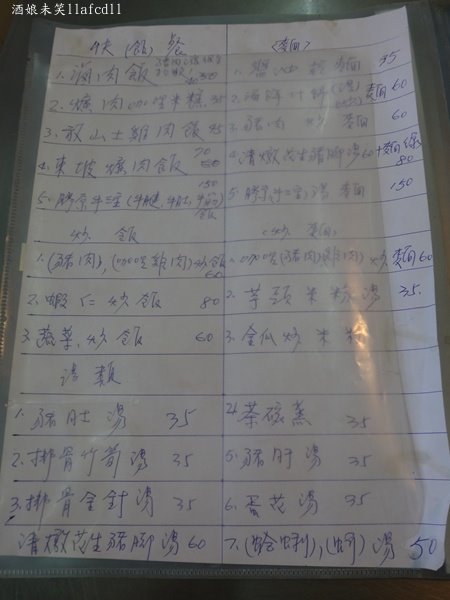 酒娘未笑llafcdll
快(飯)餐
1. 滷肉飯
2. 爌肉咖哩米糕 35
3. 放山土雞肉飯 45
4. 東坡爌肉飯 70
5. 牛三宝(牛腱,牛肚,牛筋)飯 150
炒 飯
1. (豬肉),(咖哩雞肉)炒飯 60
2. 蝦仁炒飯 80
3. 蔬菜炒飯 60
湯 類
1. 豬肚湯 35
2. 排骨竹筍湯 35
3. 排骨金針湯 35
清燉花生豬腳湯 60
<麵>
麵 35
麵 60
3. 豬肉炒麵 60
4. 清燉花生豬腳湯 60+麵線 80
5. 牛三宝湯麵 150
<炒麵>
1. 咖哩(豬肉)(雞肉)炒麵 60
2. 芋頭米粉湯 35.
3. 金瓜炒米粉
4. 茶碗蒸 35
5. 豬肝湯 35
6. 蛋花湯 35
7. (蛤蜊),(蚵)湯 50